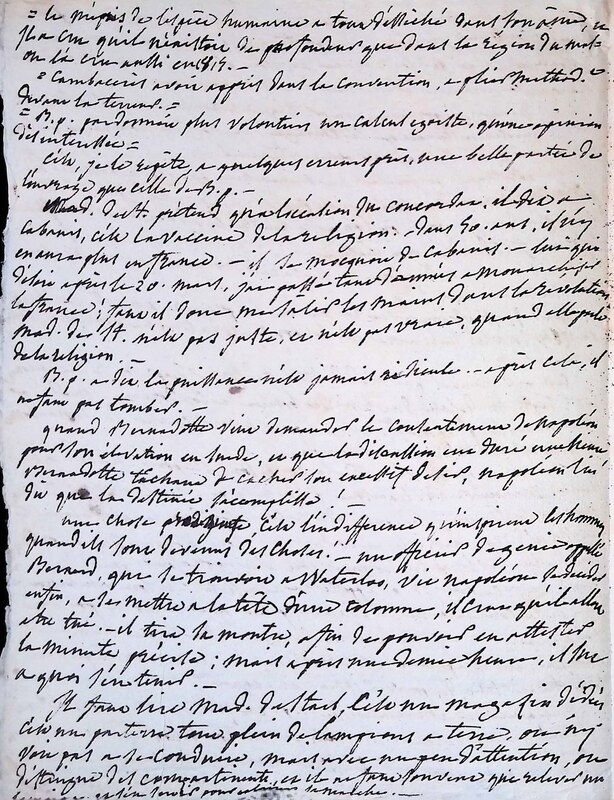 = le mépris de l'espèce humaine a tout desséché dans son âme, et
il a cru qu'il n'existoit de profondeur que dans la Région du mal =
on l'a cru aussi en 1815. —
= Cambacerès avoir appris dans la convention, a plier method.t
devant la terreur. =
= B.p. pardonnoit plus volontiers un calcul egoiste, qu'une opinion
desinteressée =
C'est, je le répète, a quelques erreurs près, une belle partie de
l'ouvrage que celle de B.p. —
Mad. de St. prétend qu'a l'occasion du concordat, il dit a
Cabanis, c'est la vaccine de la religion: dans 50. ans, il n'y
en aura plus en france. — il se moquoit de Cabanis. — lui qui
disoit après le 20. mars, j'ai passé tant d'années a monarchiser
la france; faut il donc mettre les mains dans la Revolution
Mad. de St. n'est pas juste, et n'est pas vraie, quand elle parle
de la religion. —
B.p. a dit la puissance n'est jamais ridicule. — après cela, il
ne faut pas tomber. —
quand Bernadotte vint demander le consentement de Napoléon
pour son élévation en Suede, et que la discussion eut duré une heure
Bernadotte tachant de cacher son excessif desir, napoleon lui
dit que la destinée s'accomplisse!
une chose, c'est l'indifference qu'inspirent les hommes
quand ils sont devenus des choses. — un officier de genie appellé
Bernard, que se trouvoit a Waterloo, vit napoléon se decider
enfin, a se mettre a la tête d'une colonne, il crut qu'il alloit
etre tué — il tira sa montre, afin de pouvoir en attester
la minute précise; mais après une demie heure, il sut
a quoi s'en tenir. —
Il faut lire Mad. de Stael, c'est un magasin d'idées
c'est un parterre, tout plein de lampions a terre, on n'y
voit pas a se conduire, mais avec un peu d'attention, on
distingue des compartiments, et il ne faut souvent que relever un
lampion et s'en servir pour eclairer sa marche. —